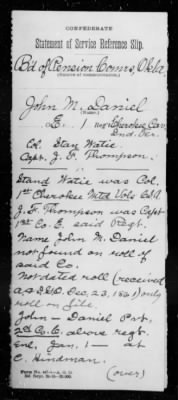 CONFEDERATE
Statement of Service Reference Slip.
Bd of Pension Comrs, Okla
(Source of communication.)
John M. Daniel
(Name.)
E. 1 Reg Cherokee Cav,
2nd. Ter.
Col. Stan Watie.
Capt. J. F. Thompson.
Stand Watie was Col.
1st Cherokee Mtd Vols CSA
J. F. Thompson was Capt
1st Co. E. said Regt.
Name John M. Daniel
not found on roll of
said Co.
Not dated roll (received
A.& I.G.O. Dec. 23, 1861) only
roll on file.
John Daniel Pvt.
2d Co. E. above regt.
Enl. Jan. 1— at
C. Hindman.
(over)